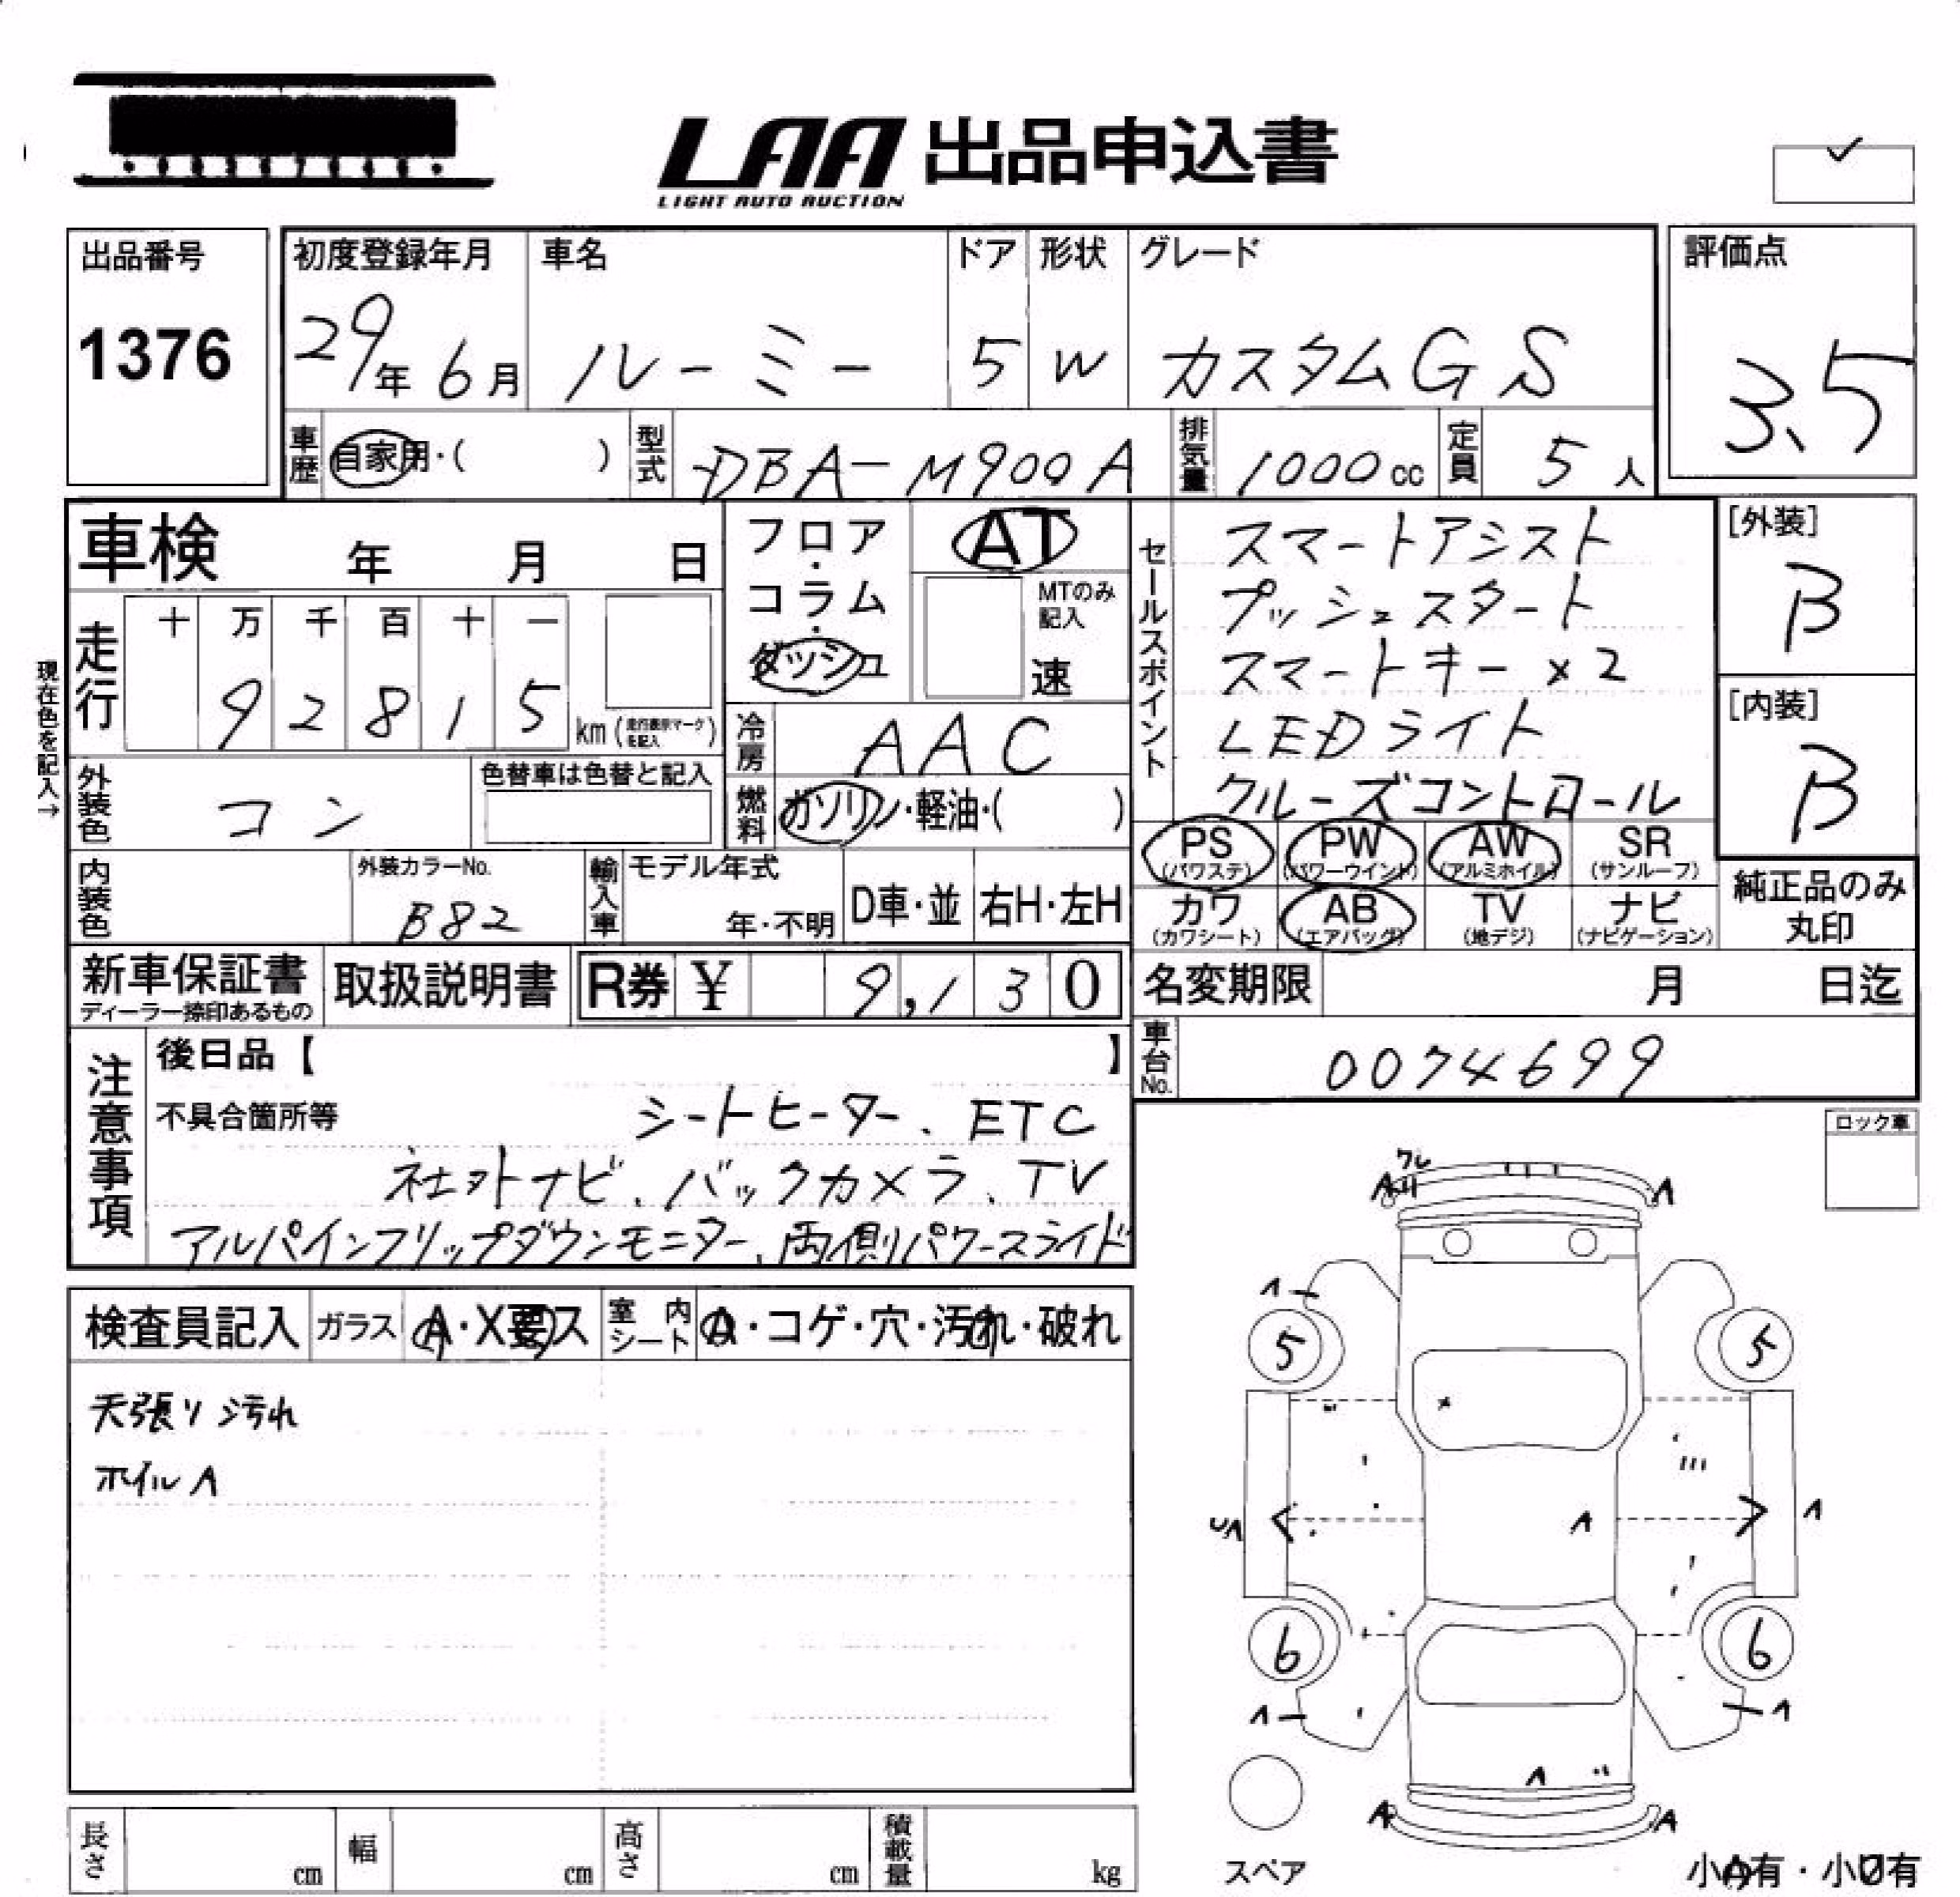 LAA 出品申込書
LIGHT AUTO AUCTION
出品番号
1376
初度登録年月
29年 6月
車名
ルーミー
ドア
5
形状
W
グレード
カスタムGS
評価点
3.5
車歴
自家用・( )
型式
DBA-M900A
排気量
1000cc
定員
5人
車検 年 月 日
フロア・コラム・ダッシュ
AT
MTのみ記入
速
セールスポイント
スマートアシスト
プッシュスタート
スマートキー×2
LEDライト
クルーズコントロール
[外装]
B
[内装]
B
現在色を記入→
走行
十 万 千 百 十 一
9 2 8 1 5
km (走行表示マークを記入)
冷房
AAC
外装色
コン
色替車は色替と記入
燃料
ガソリン・軽油・( )
PS (パワステ)
PW (パワーウインド)
AW (アルミホイル)
SR (サンルーフ)
カワ (カワシート)
AB (エアバッグ)
TV (地デジ)
ナビ (ナビゲーション)
純正品のみ丸印
内装色
外装カラーNo.
B82
輸入車
モデル年式
年・不明
D車・並
右H・左H
新車保証書
ディーラー捺印あるもの
取扱説明書
R券 ¥ 9,130
名変期限 月 日迄
車台No.
0074699
注意事項
後日品【 】
不具合箇所等
シートヒーター、ETC
社外ナビ、バックカメラ、TV
アルパインフリップダウンモニター、両側パワースライド
ロック車
検査員記入
ガラス
A・X要ス
室内シート
A・コゲ・穴・汚れ・破れ
天張り汚れ
ホイルA
ワレ
A
A
A
5
5
A
UA
A
A
6
6
A
A
A
A
A
スペア
小A有・小U有
長さ cm
幅 cm
高さ cm
積載量 kg